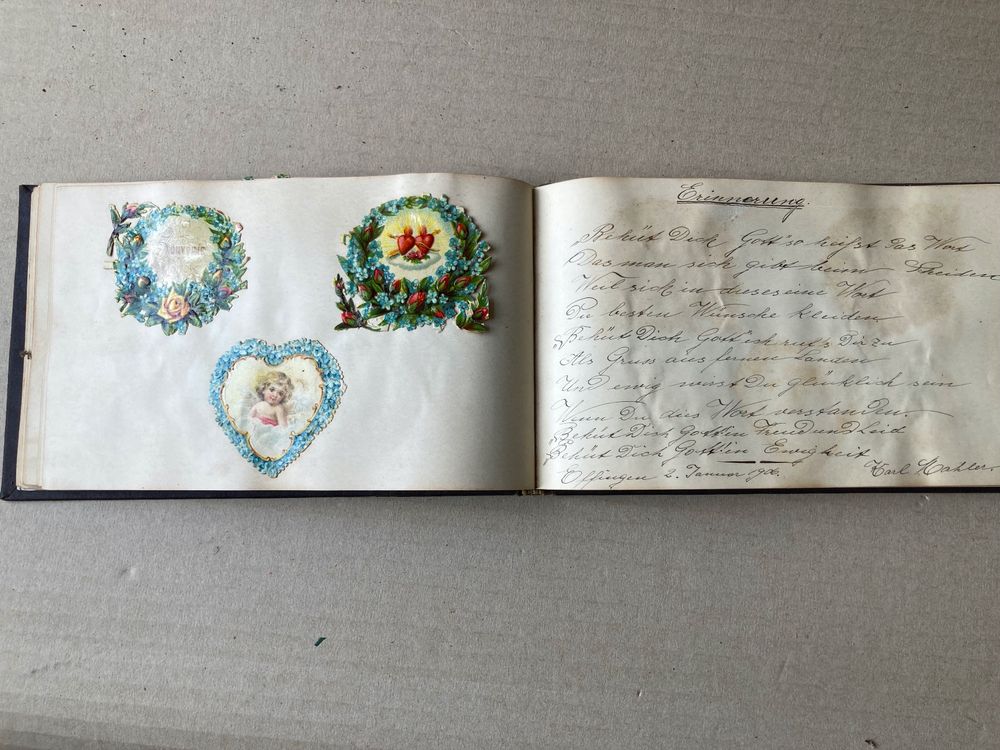 SOUVENIR
Erinnerung.
„Behüt Dich Gott" so heißt das Wort
Das man sich gibt beim Scheiden
Weil sich in dieses eine Wort
Die besten Wünsche kleiden.
„Behüt Dich Gott" ich ruf's Dir zu
Als Gruss aus fernen Landen
Und ewig wirst Du glücklich sein
Wenn Du dies Wort verstanden.
Behüt Dich Gott in Freud und Leid
Behüt Dich Gott in Ewigkeit
2. Januar 1906. Karl